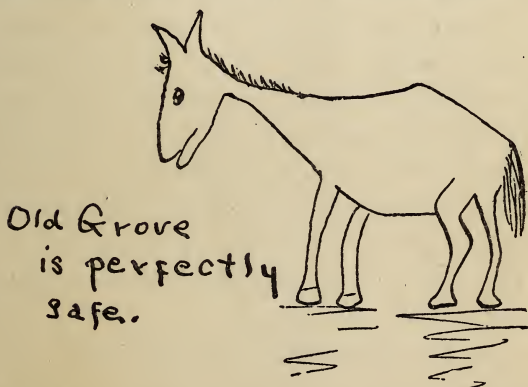 Old Grove
is perfectly
safe.